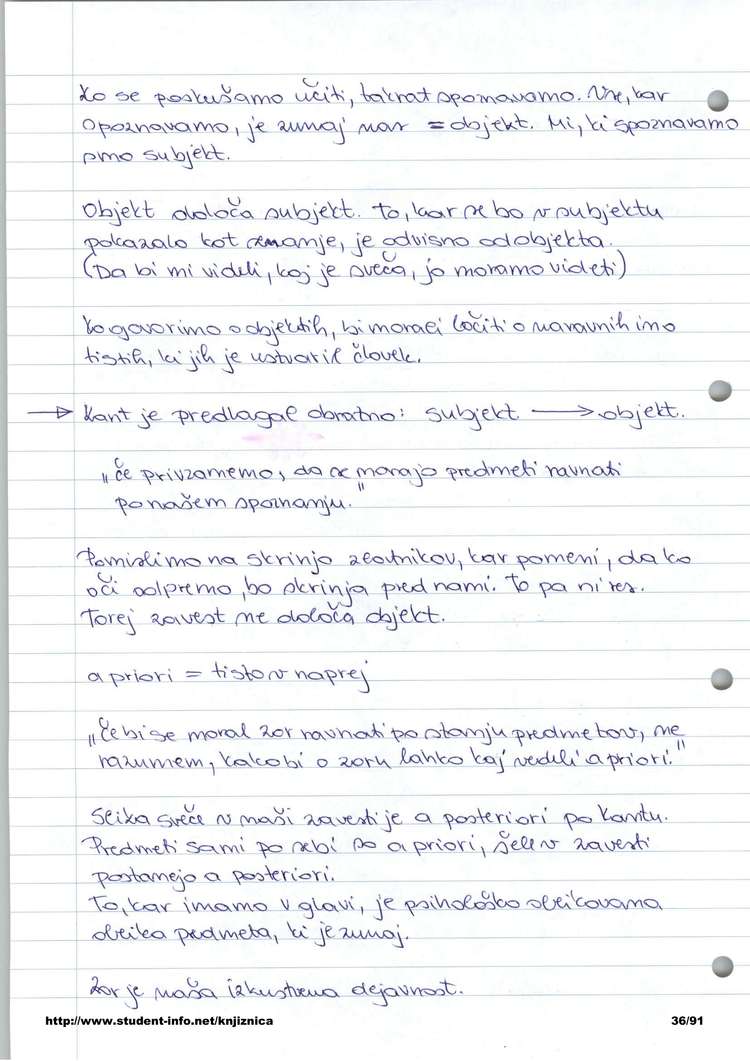 Ko se poskušamo učiti, takrat spoznavamo. Vse, kar
opoznavamo, je zunaj nas = objekt. Mi, ki spoznavamo
smo subjekt.
Objekt določa subjekt. To, kar se bo v subjektu
pokazalo kot znanje, je odvisno od objekta.
(Da bi mi videli, kaj je sveča, jo moramo videti)
Ko govorimo o objektih, bi morali ločiti o naravnih in o
tistih, ki jih je ustvaril človek.
→ Kant je predlagal obratno: subjekt → objekt.
„če privzamemo, da se morajo predmeti ravnati
po našem spoznanju."
Pomislimo na skrinjo zlatnikov, kar pomeni, da ko
oči odpremo, bo skrinja pred nami. To pa ni res.
Torej zavest ne določa objekt.
a priori = tisto v naprej
„Če bi se moral zor ravnati po stanju predmetov, ne
razumem, kako bi o zoru lahko kaj vedeli a priori."
Slika sveče v naši zavesti je a posteriori po Kantu.
Predmeti sami po sebi so a priori, šele v zavesti
postanejo a posteriori.
To, kar imamo v glavi, je psihološko oblikovana
oblika predmeta, ki je zunaj.
Zor je naša izkustvena dejavnost.
http://www.student-info.net/knjiznica 36/91